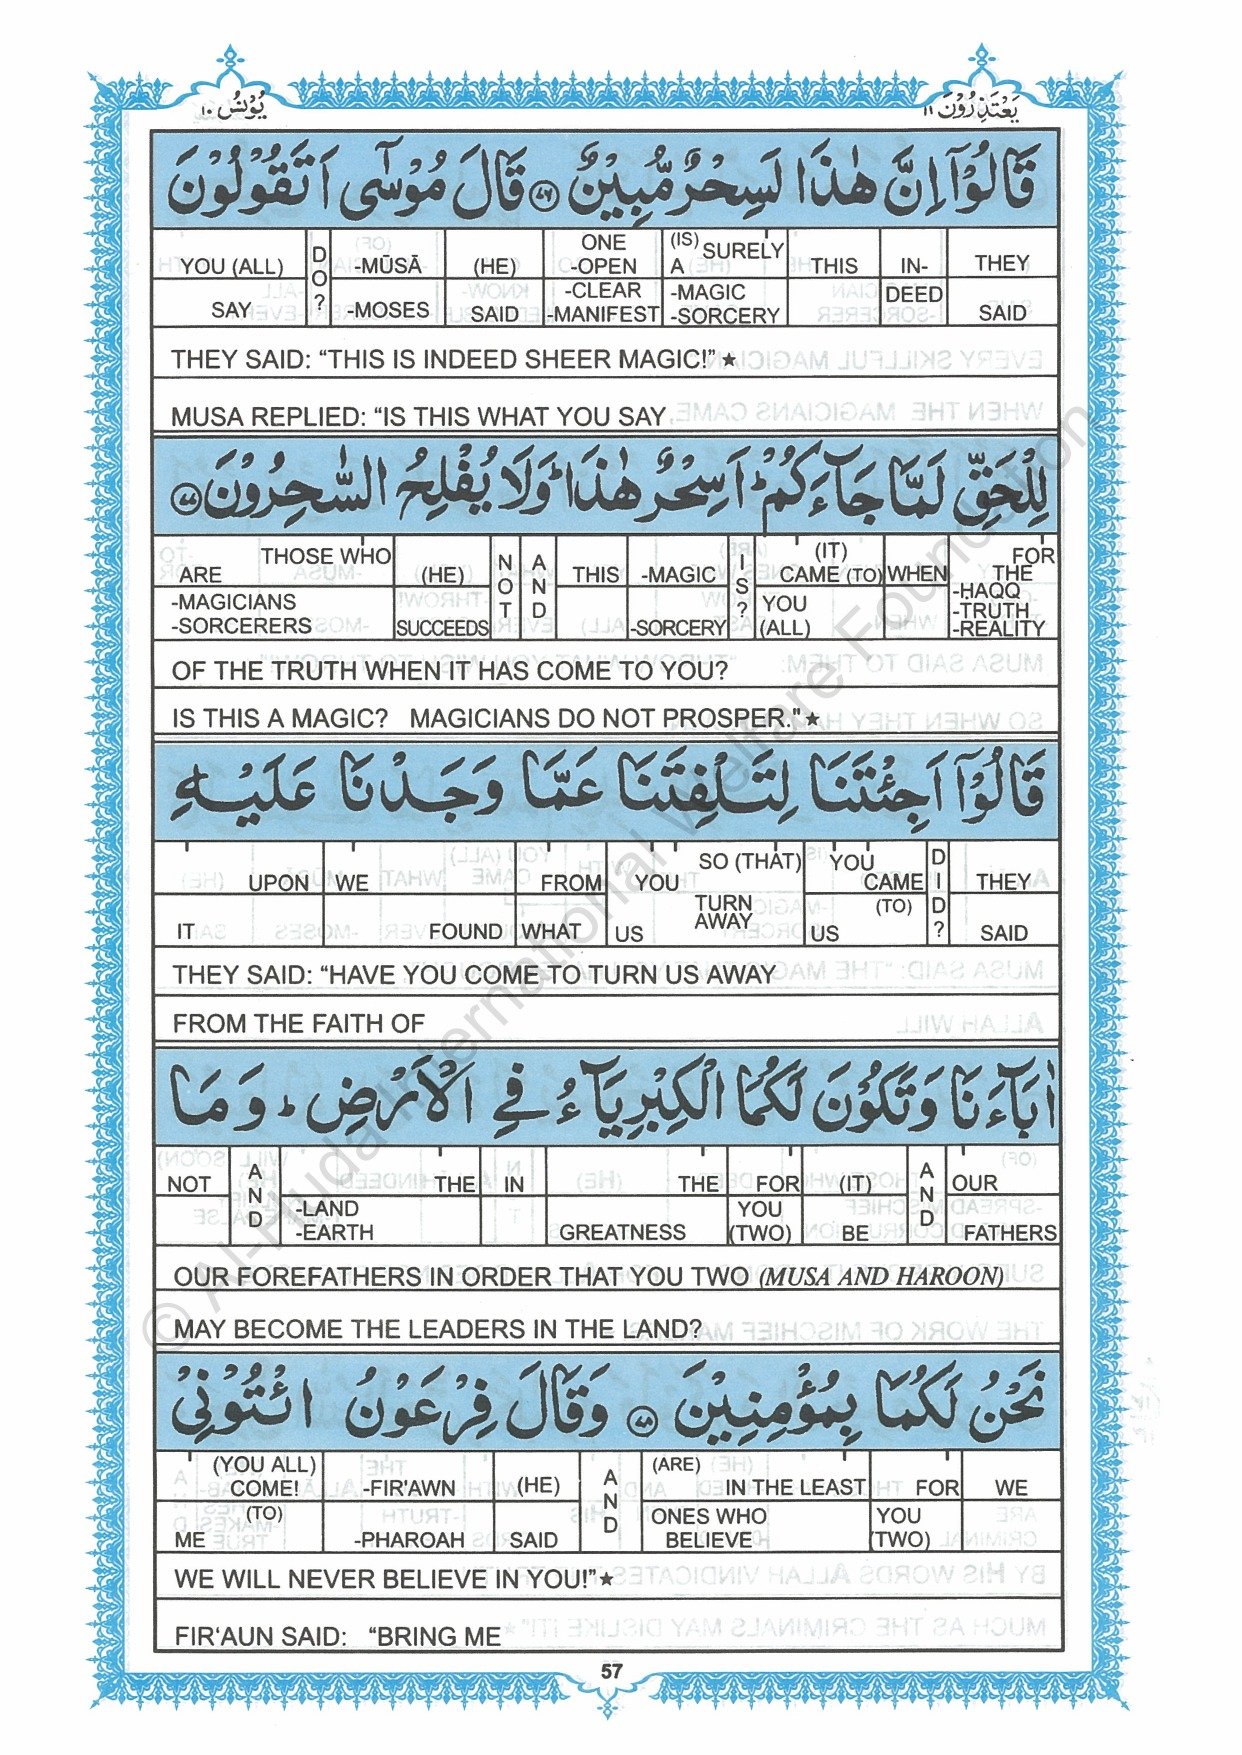 يَعْتَذِرُوْنَ ١١
يُوْنُسُ ١٠
قَالُوْٓا اِنَّ هٰذَا لَسِحْرٌ مُّبِيْنٌ ﴿٧٦﴾ قَالَ مُوْسٰٓى اَتَقُوْلُوْنَ
YOU (ALL) SAY | DO? | -MŪSĀ -MOSES | (HE) SAID | ONE -OPEN -CLEAR -MANIFEST | (IS) SURELY A -MAGIC -SORCERY | THIS | IN- DEED | THEY SAID
THEY SAID: “THIS IS INDEED SHEER MAGIC!”★
MUSA REPLIED: “IS THIS WHAT YOU SAY
لِلْحَقِّ لَمَّا جَآءَكُمْ ؕ اَسِحْرٌ هٰذَا ؕ وَلَا يُفْلِحُ السّٰحِرُوْنَ ﴿٧٧﴾
THOSE WHO ARE -MAGICIANS -SORCERERS | (HE) SUCCEEDS | NOT | AND | THIS | -MAGIC -SORCERY | IS? | (IT) CAME (TO) YOU (ALL) | WHEN | FOR THE -ḤAQQ -TRUTH -REALITY
OF THE TRUTH WHEN IT HAS COME TO YOU?
IS THIS A MAGIC? MAGICIANS DO NOT PROSPER."★
قَالُوْٓا اَجِئْتَنَا لِتَلْفِتَنَا عَمَّا وَجَدْنَا عَلَيْهِ
UPON IT | WE FOUND | FROM WHAT | YOU SO (THAT) TURN AWAY US | YOU CAME (TO) US | DID? | THEY SAID
THEY SAID: “HAVE YOU COME TO TURN US AWAY
FROM THE FAITH OF
اٰبَآءَنَا وَتَكُوْنَ لَكُمَا الْكِبْرِيَآءُ فِي الْاَرْضِ ؕ وَمَا
NOT | AND | THE -LAND -EARTH | IN | THE GREATNESS | FOR YOU (TWO) | (IT) BE | AND | OUR FATHERS
OUR FOREFATHERS IN ORDER THAT YOU TWO (MUSA AND HAROON)
MAY BECOME THE LEADERS IN THE LAND?
نَحْنُ لَكُمَا بِمُؤْمِنِيْنَ ﴿٧٨﴾ وَقَالَ فِرْعَوْنُ ائْتُوْنِيْ
(YOU ALL) COME! (TO) ME | -FIR'AWN -PHAROAH | (HE) SAID | AND | (ARE) IN THE LEAST ONES WHO BELIEVE | FOR YOU (TWO) | WE
WE WILL NEVER BELIEVE IN YOU!”★
FIR‘AUN SAID: “BRING ME
57
© Al-Huda International Welfare Foundation